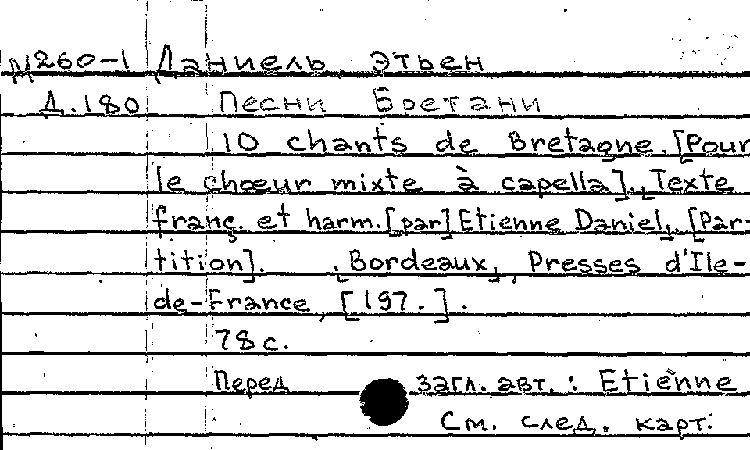 М260-1 Даниель, Этьен
Д.180 Песни Бретани
10 chants de Bretagne. [Pour
le chœur mixte à capella]. Texte
franç. et harm. [par] Etienne Daniel. [Par-
tition]. Bordeaux, Presses d'Ile-
de-France, [197.].
78 с.
Перед загл. авт.: Etienne
См. след. карт.